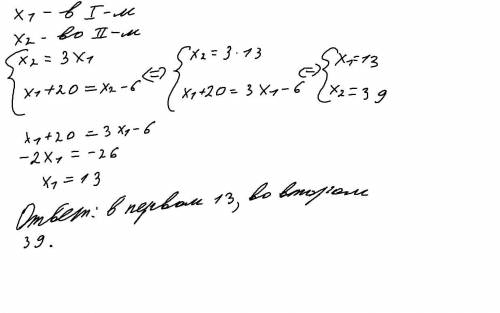 x₁ - в I-м
x₂ - во II-м
{ x₂ = 3x₁ <=> { x₂ = 3·13 <=> { x₁=13
x₁+20 = x₂-6 x₁+20 = 3x₁-6 x₂=39
x₁+20 = 3x₁-6
-2x₁ = -26
x₁ = 13
Ответ: в первом 13, во втором
39.